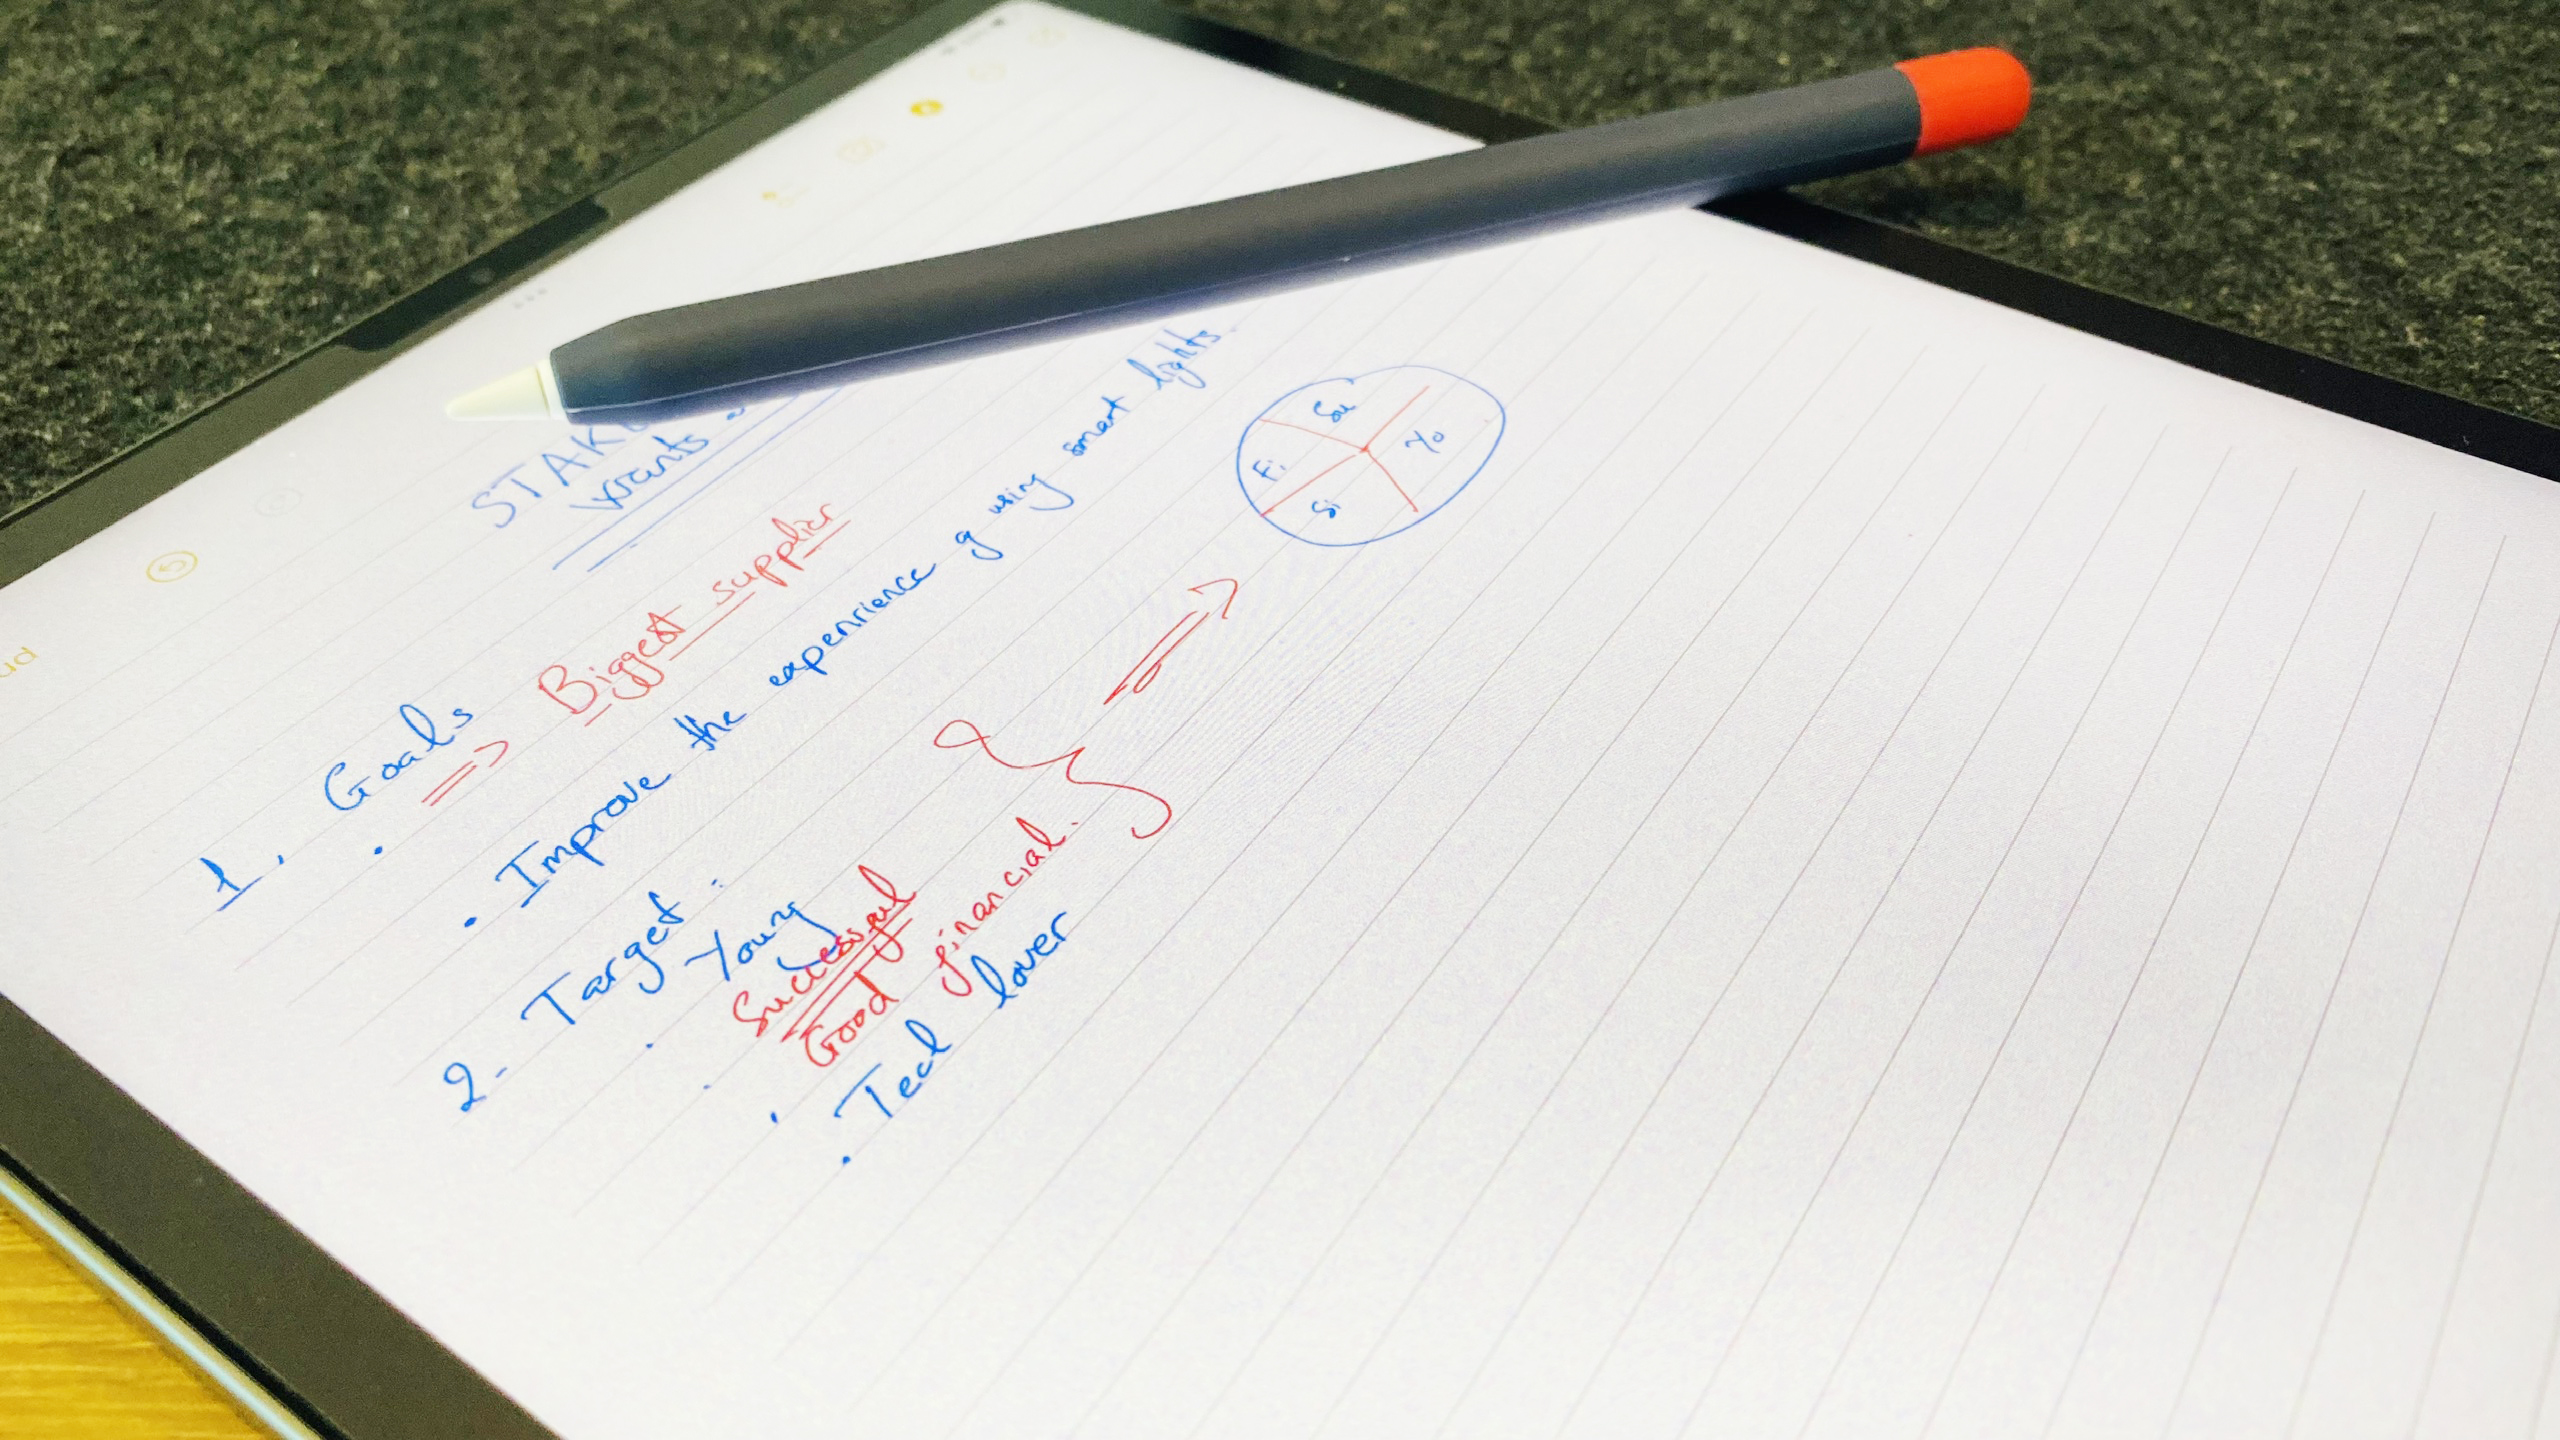 wants
1. Goals
⇒ Biggest supplier
• Improve the expenrience of using smart lights.
2- Target:
• Young
• Successful
• Good financial.
• Tech lover
Su
Yo
Fi
Si